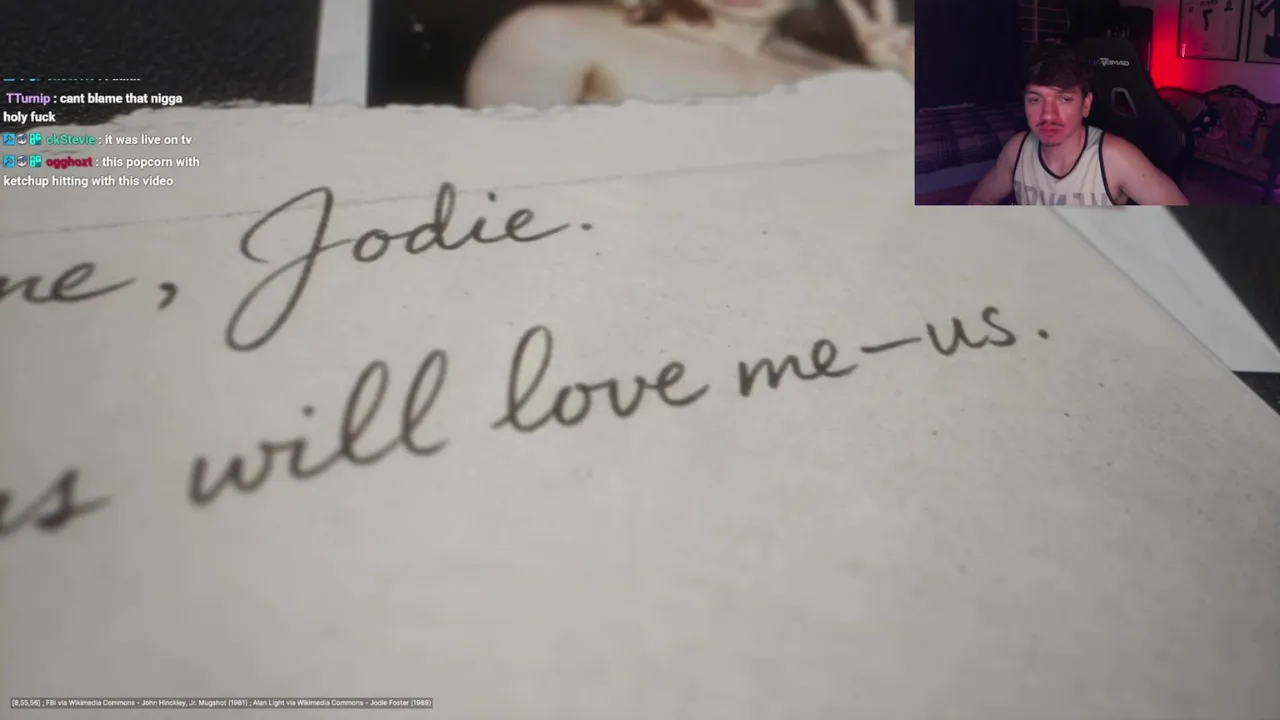 TTurnip : cant blame that nigga
holy fuck
okStevie : it was live on tv
ogghozt : this popcorn with
ketchup hitting with this video
me, Jodie.
will love me-us.
[8,55,56] ; FBI via Wikimedia Commons - John Hinckley, Jr. Mugshot (1981) ; Alan Light via Wikimedia Commons - Jodie Foster (1989)